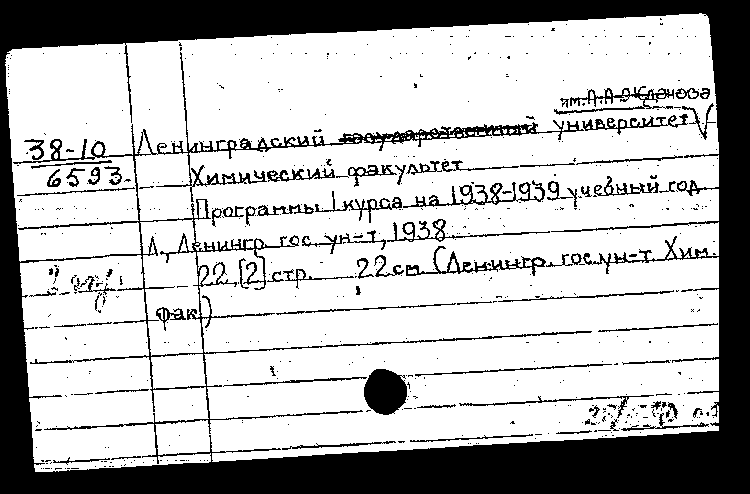 им. А. А. Жданова
38-10 Ленинградский государственный университет
6593. Химический факультет
Программы 1 курса на 1938-1939 учебный год
Л., Ленингр. гос. ун-т, 1938.
22, [2] стр. 22 см. (Ленингр. гос. ун-т. Хим.
фак.)